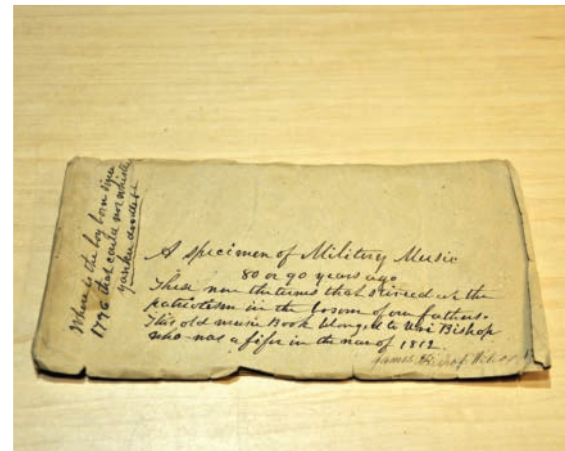 Where is the boy born since
1776 that could not whistle
yankee doodle
A specimen of Military Music
80 or 90 years ago
These now the tunes that stired up the
patriotism in the bosom of our fathers.
This old music Book belonged to Uri Bishop
who was a fifer in the war of 1812.
James Bishop